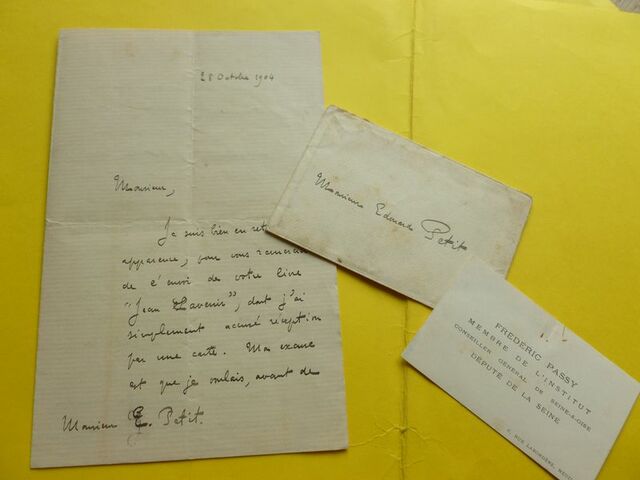 28 Octobre 1904
Monsieur,
Je suis bien en
apparence, pour vous
de l'envoi de votre livre
"Jean Lavenir", dont j'ai
simplement accusé réception
par une carte. Mon excuse
est que je voulais, avant de
Monsieur E. Petit.
Monsieur Edouard Petit
FRÉDÉRIC PASSY
MEMBRE DE L'INSTITUT
CONSEILLER GÉNÉRAL DE SEINE-&-OISE
DÉPUTÉ DE LA SEINE
RUE LABORDÈRE,